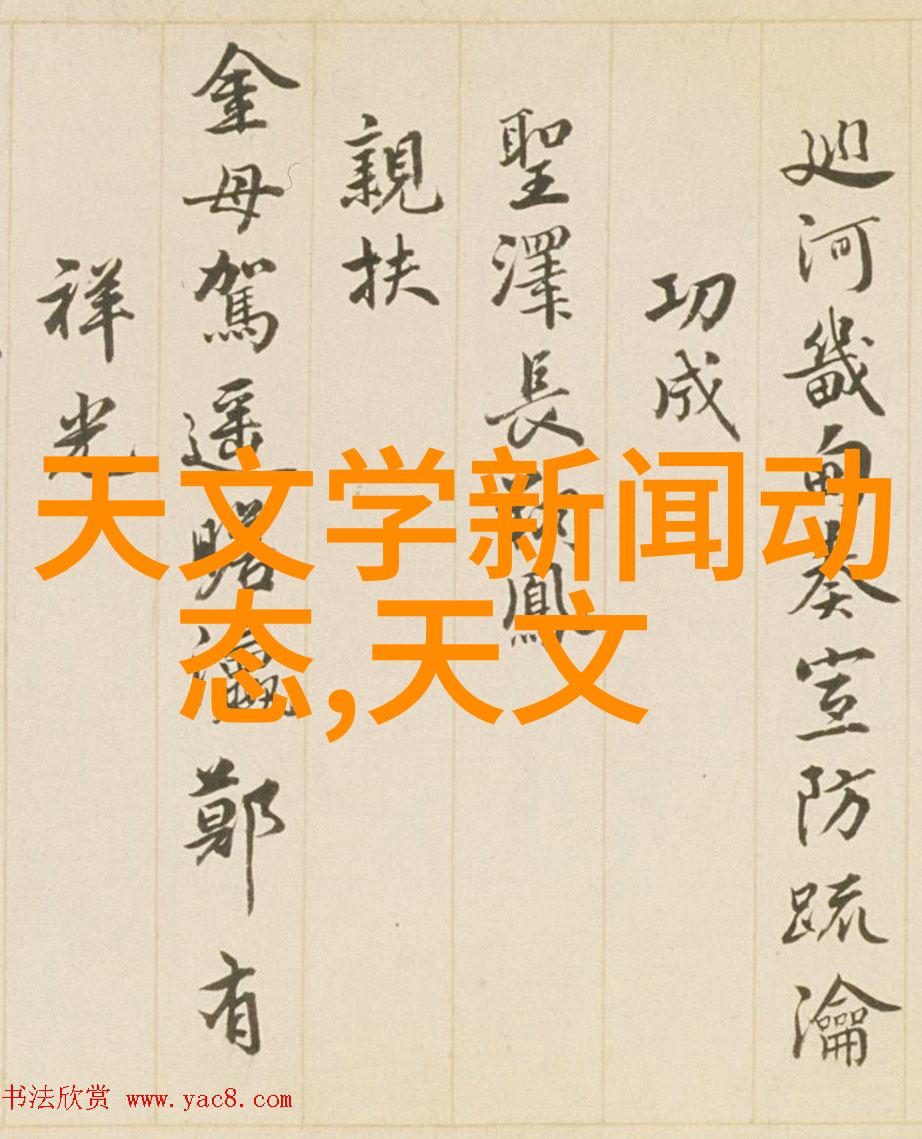 廵河畿甸奏宣防疏瀹
功成
聖澤長頒鳳
親扶
金母駕遥瞻瀛鄭有
祥光
天文学新闻动
态,天文
书法欣赏 www.yac8.com